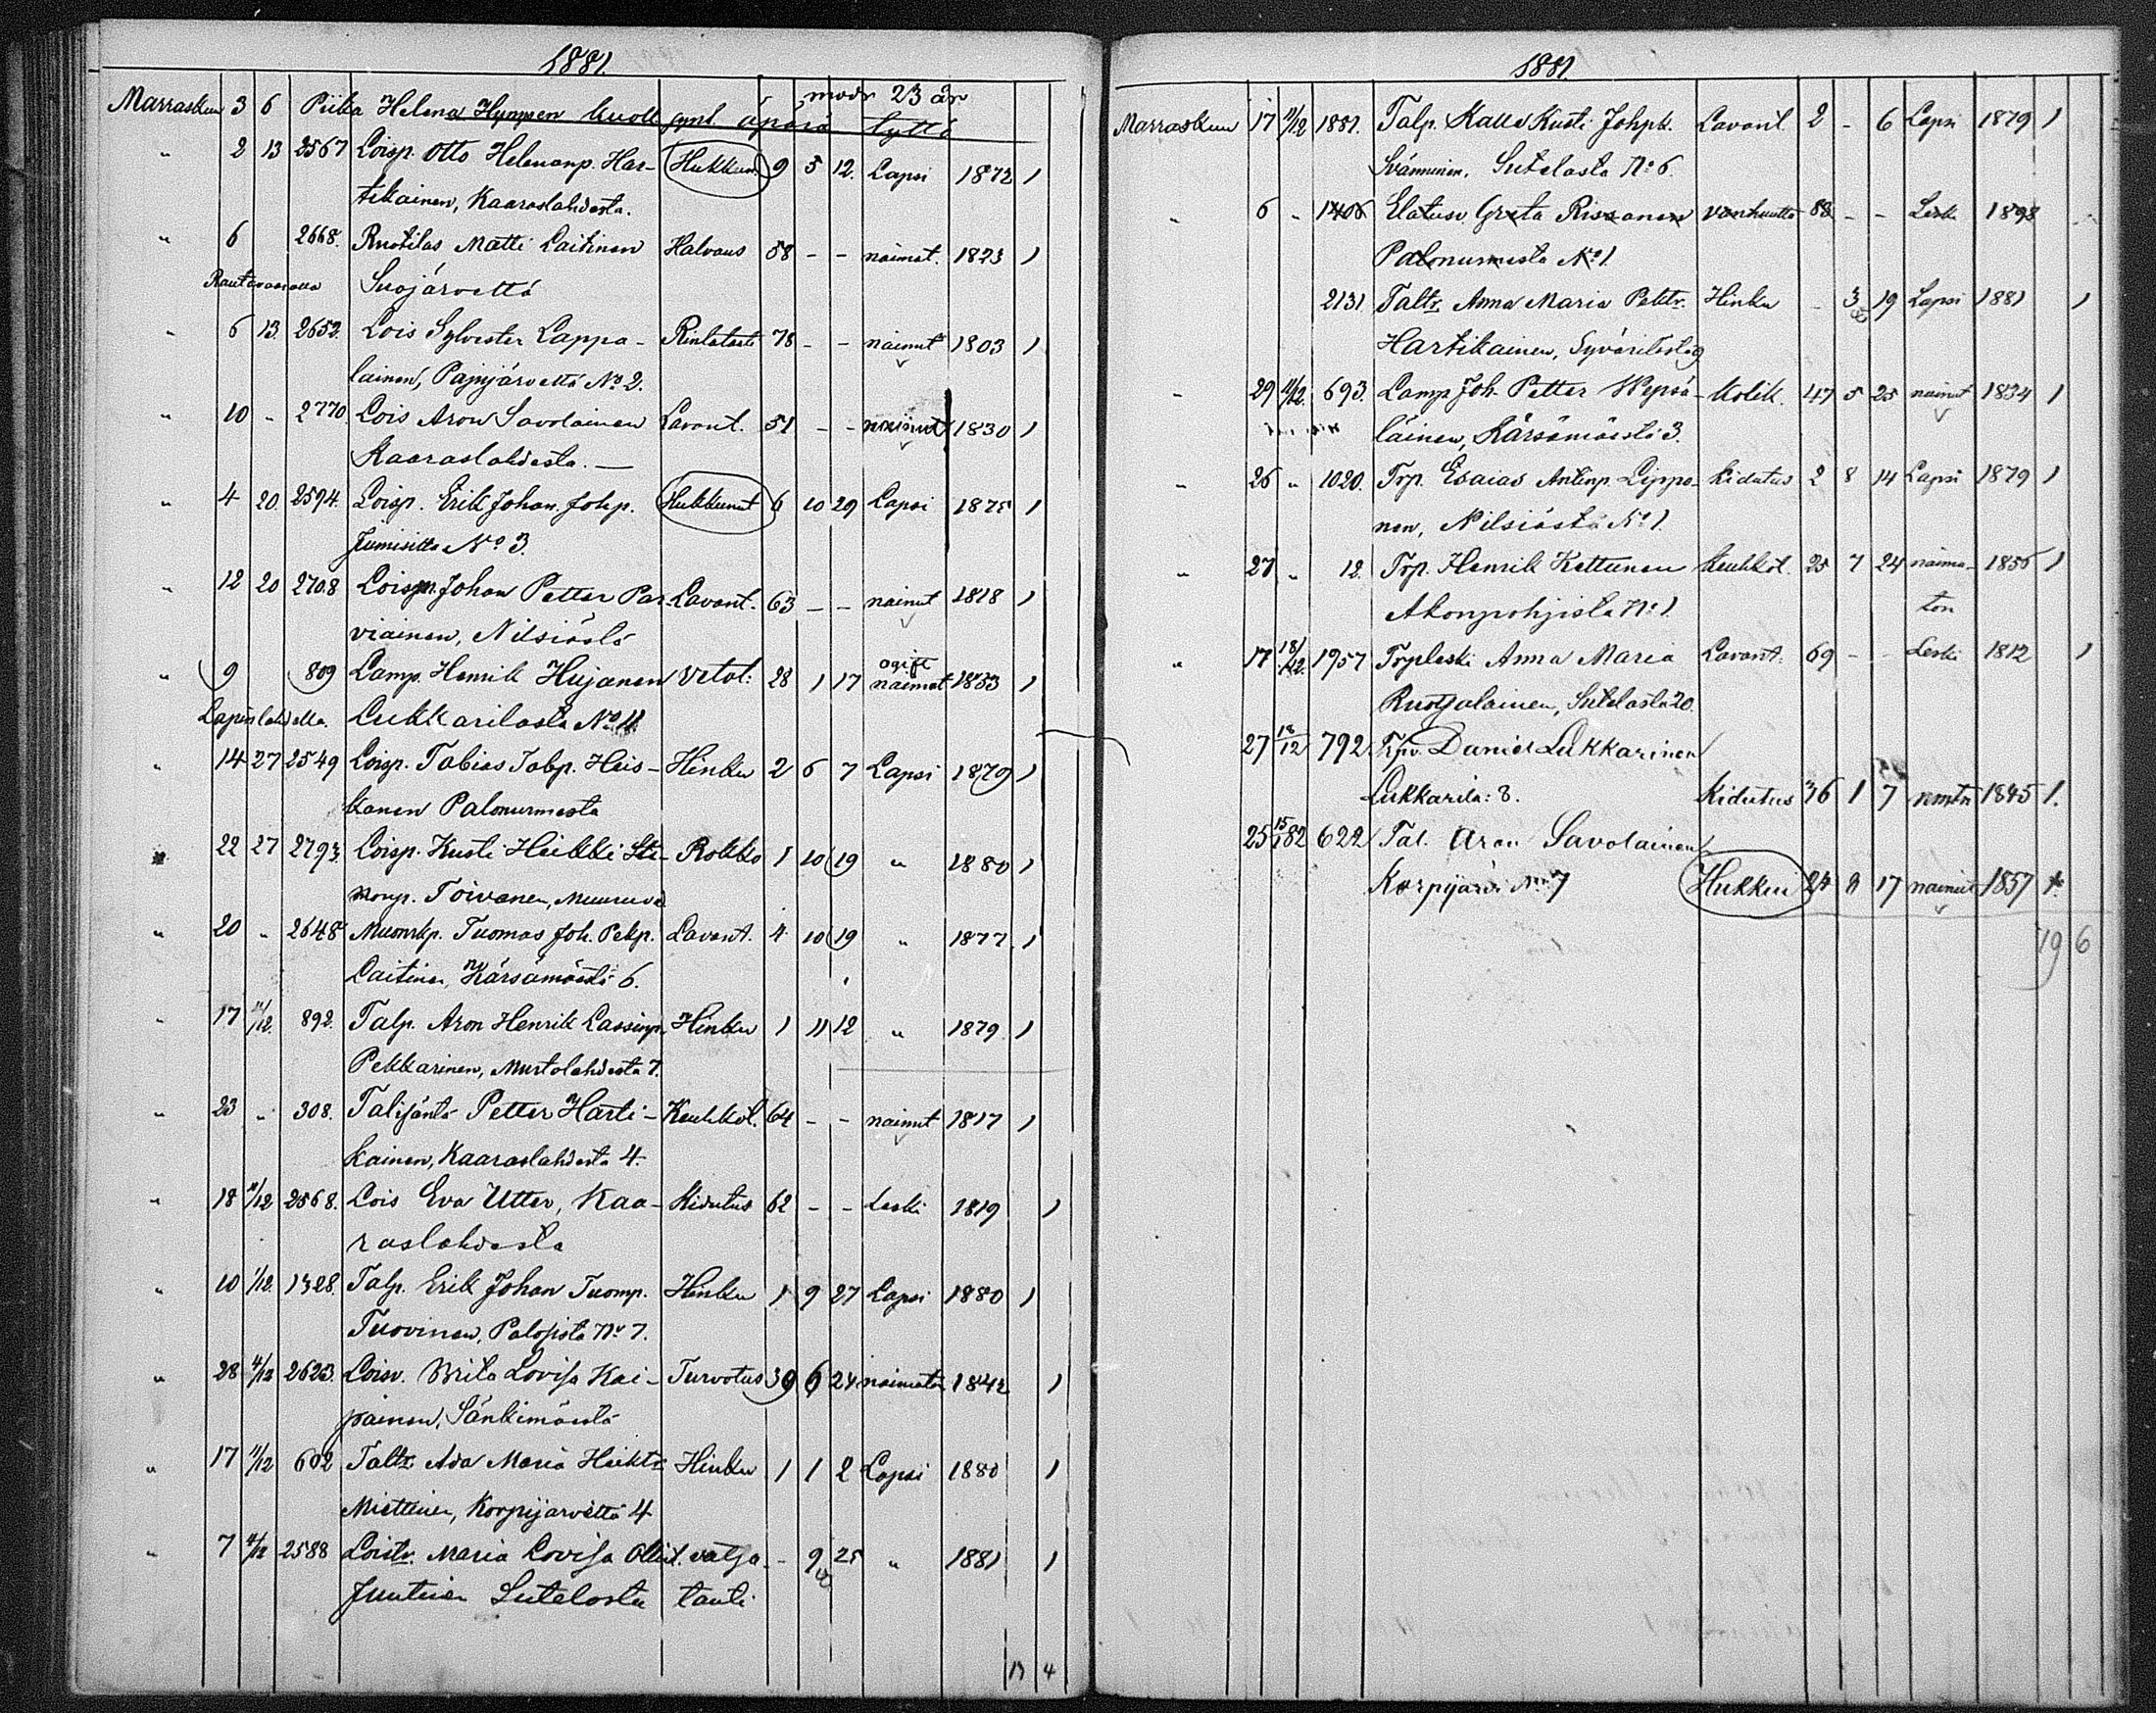 1881.
modr 23 år
Marraskuu 3 6 Piika Helena Hynynen kuoll. synt. äpärä tyttö
" 2 13 2567 Loisp. Otto Helenanp. Har- Hukkun. 9 5 12. Lapsi 1872 1
tikainen, Kaaraslahdesta.
" 6 2668. Ruotilas Matti Laitinen Halvaus 58 - - naimat. 1823 1
Rautavaaralla Suojärveltä
" 6 13. 2652. Lois Sylvester Lappa- Rintatauti 78 - - nainut 1803 1
lainen, Pajujärveltä No 2.
" 10 - 2770. Lois Aron Savolainen Lavant. 51 - - nainut 1830 1
Kaaraslahdesta. —
" 4 20. 2594. Loisp. Erik Johan Johp. Hukkunut 6 10 29 Lapsi 1875 1
No 3.
" 12 20 2708 Loism. Johan Petter Par- Lavant. 63 - - nainut 1818 1
viainen, Nilsiästä
ogift
" 9 809 Lamp. Henrik Hujanen Vetot: 28 1 17 naimat 1853 1
Lapinlahdella. Lukkarilasta No 11
" 14 27 2549 Loisp. Tobias Tobp. Heis- Hinku 2 6 7 Lapsi 1879 1
kanen Palonurmesta
" 22 27 2793 Loisp. Kusti Heikki Ste- Rokko 1 10 19 " 1880 1
Toivanen, Muuruve
" 20 " 2648 Muonrkp. Tuomas Joh. Pekp. Lavant. 4 10 19 " 1877. 1
Laitinen, Kärsämäestä 6.
" 17 11/12. 892. Talp. Aron Henrik Lassinp. Hinku 1 11 12 " 1879. 1
Pekkarinen, Murtolahdesta 7.
" 23 " 308. Talisäntä Petter Harti- Keuhkot. 64 - - nainut 1817 1
kainen, Kaaraslahdesta 4.
" 18 11/12 2568. Lois Eva Utter, Kaa- Kidutus 62 - - Leski 1819 1
raslahdesta
" 10 1/12. 1328. Talp. Erik Johan Tuomp. Hinku 1 9 27 Lapsi 1880 1
Tuovinen, Paloisista No 7.
" 28 4/12 2623. Loisv. Brita Lovisa Kai- Turvotus 39 6 24 naimaton 1842 1
painen, Sänkimäestä
" 17 11/12 602 Taltr. Ada Maria Heiktr. Hinku 1 1 2 Lapsi 1880 1
Miettinen, Korpijärveltä 4
" 7 11/12 2588 Loistr. Maria Lovisa Ollint. vatsa- - 9 25 " 1881 1
Juutinen Sutelasta tauti
13 4
1881.
Marraskuu 17 11/12 1881. Talp. Kalle Kusti Johpk. Lavant. 2 - 6 Lapsi 1879 1
Svänninen, Sutelasta No 6.
" 6 " 1406 Elatusv. Greta Rissanen vanhuutta 88 - - Leski 1898
Palonurmesta No 1.
2131 Taltr. Anna Maria Pettr. Hinku - 3 19 Lapsi 1881 1
Hartikainen, Syväriltä 9
" 29 11/12. 693. Lamp. Joh. Petter Wepsä- Kolik. 47 5 25 nainut 1834 1
läinen, Kärsämäestä 3.
" 26 " 1020. Trp. Esaias Antinp. Lippo- Kidutus 2 8 14 Lapsi 1879 1
nen, Nilsiästä No 1.
" 27 " 12. Trp. Henrik Kettunen Keuhkot. 25 7 24 naima- 1856 1
Akonpohjista No 1. ton
" 17 18/12. 1957 Trpleski Anna Maria Lavant. 69 - - Leski 1812 1
Ruotsalainen, Sutelasta 20.
27 18/12 792 Trpv. Daniel Lukkarinen
Lukkarila: 8. Kidutus 36 1 7 nmtn 1845 1.
25 15/1 82 622 Tal. Aron Savolainen
Korpijärvi No 7 Hukkui 24 8 17 nainut 1857 1.
19 6